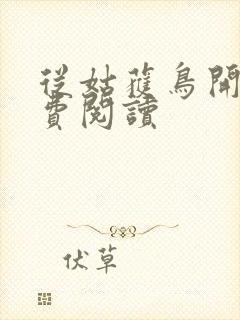 從姑獲鳥開
費閱讀
伏草